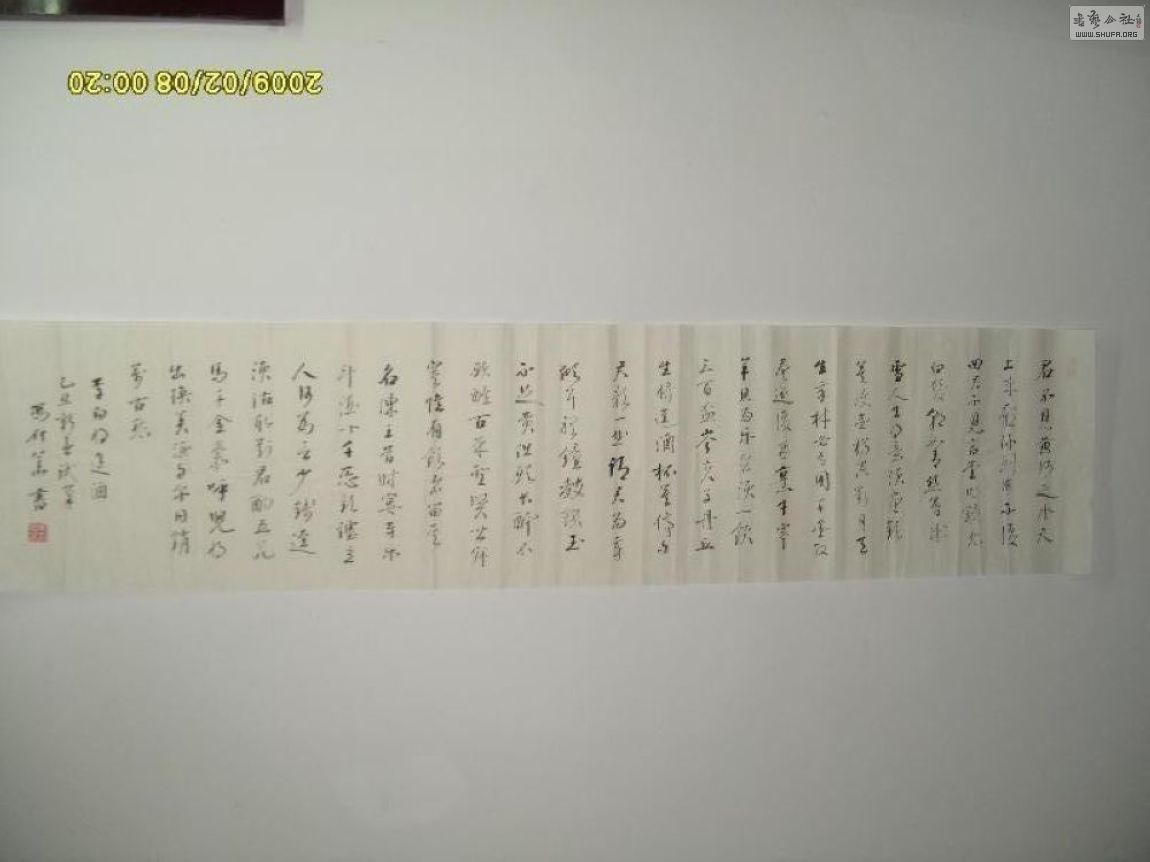 2009/02/08 00:20
WWW.SHUFA.ORG
君不見黃河之水天
上來奔流到海不復
回君不見高堂明鏡悲
白髮朝如青絲暮成
雪人生得意須盡歡
莫使金樽空對月天
生我材必有用千金散
盡還復來烹牛宰
羊且為樂會須一飲
三百盃岑夫子丹丘
生將進酒杯莫停與
君歌一曲請君為我
傾耳聽鐘鼓饌玉
不足貴但願長醉不
願醒古來聖賢皆
寞惟有飲者留其
名陳王昔時宴平樂
斗酒十千恣歡謔主
人何為言少錢逕
須沽取對君酌五花
馬千金裘呼兒將
出換美酒與爾同銷
萬古愁
李白將進酒
己丑新春試筆
書